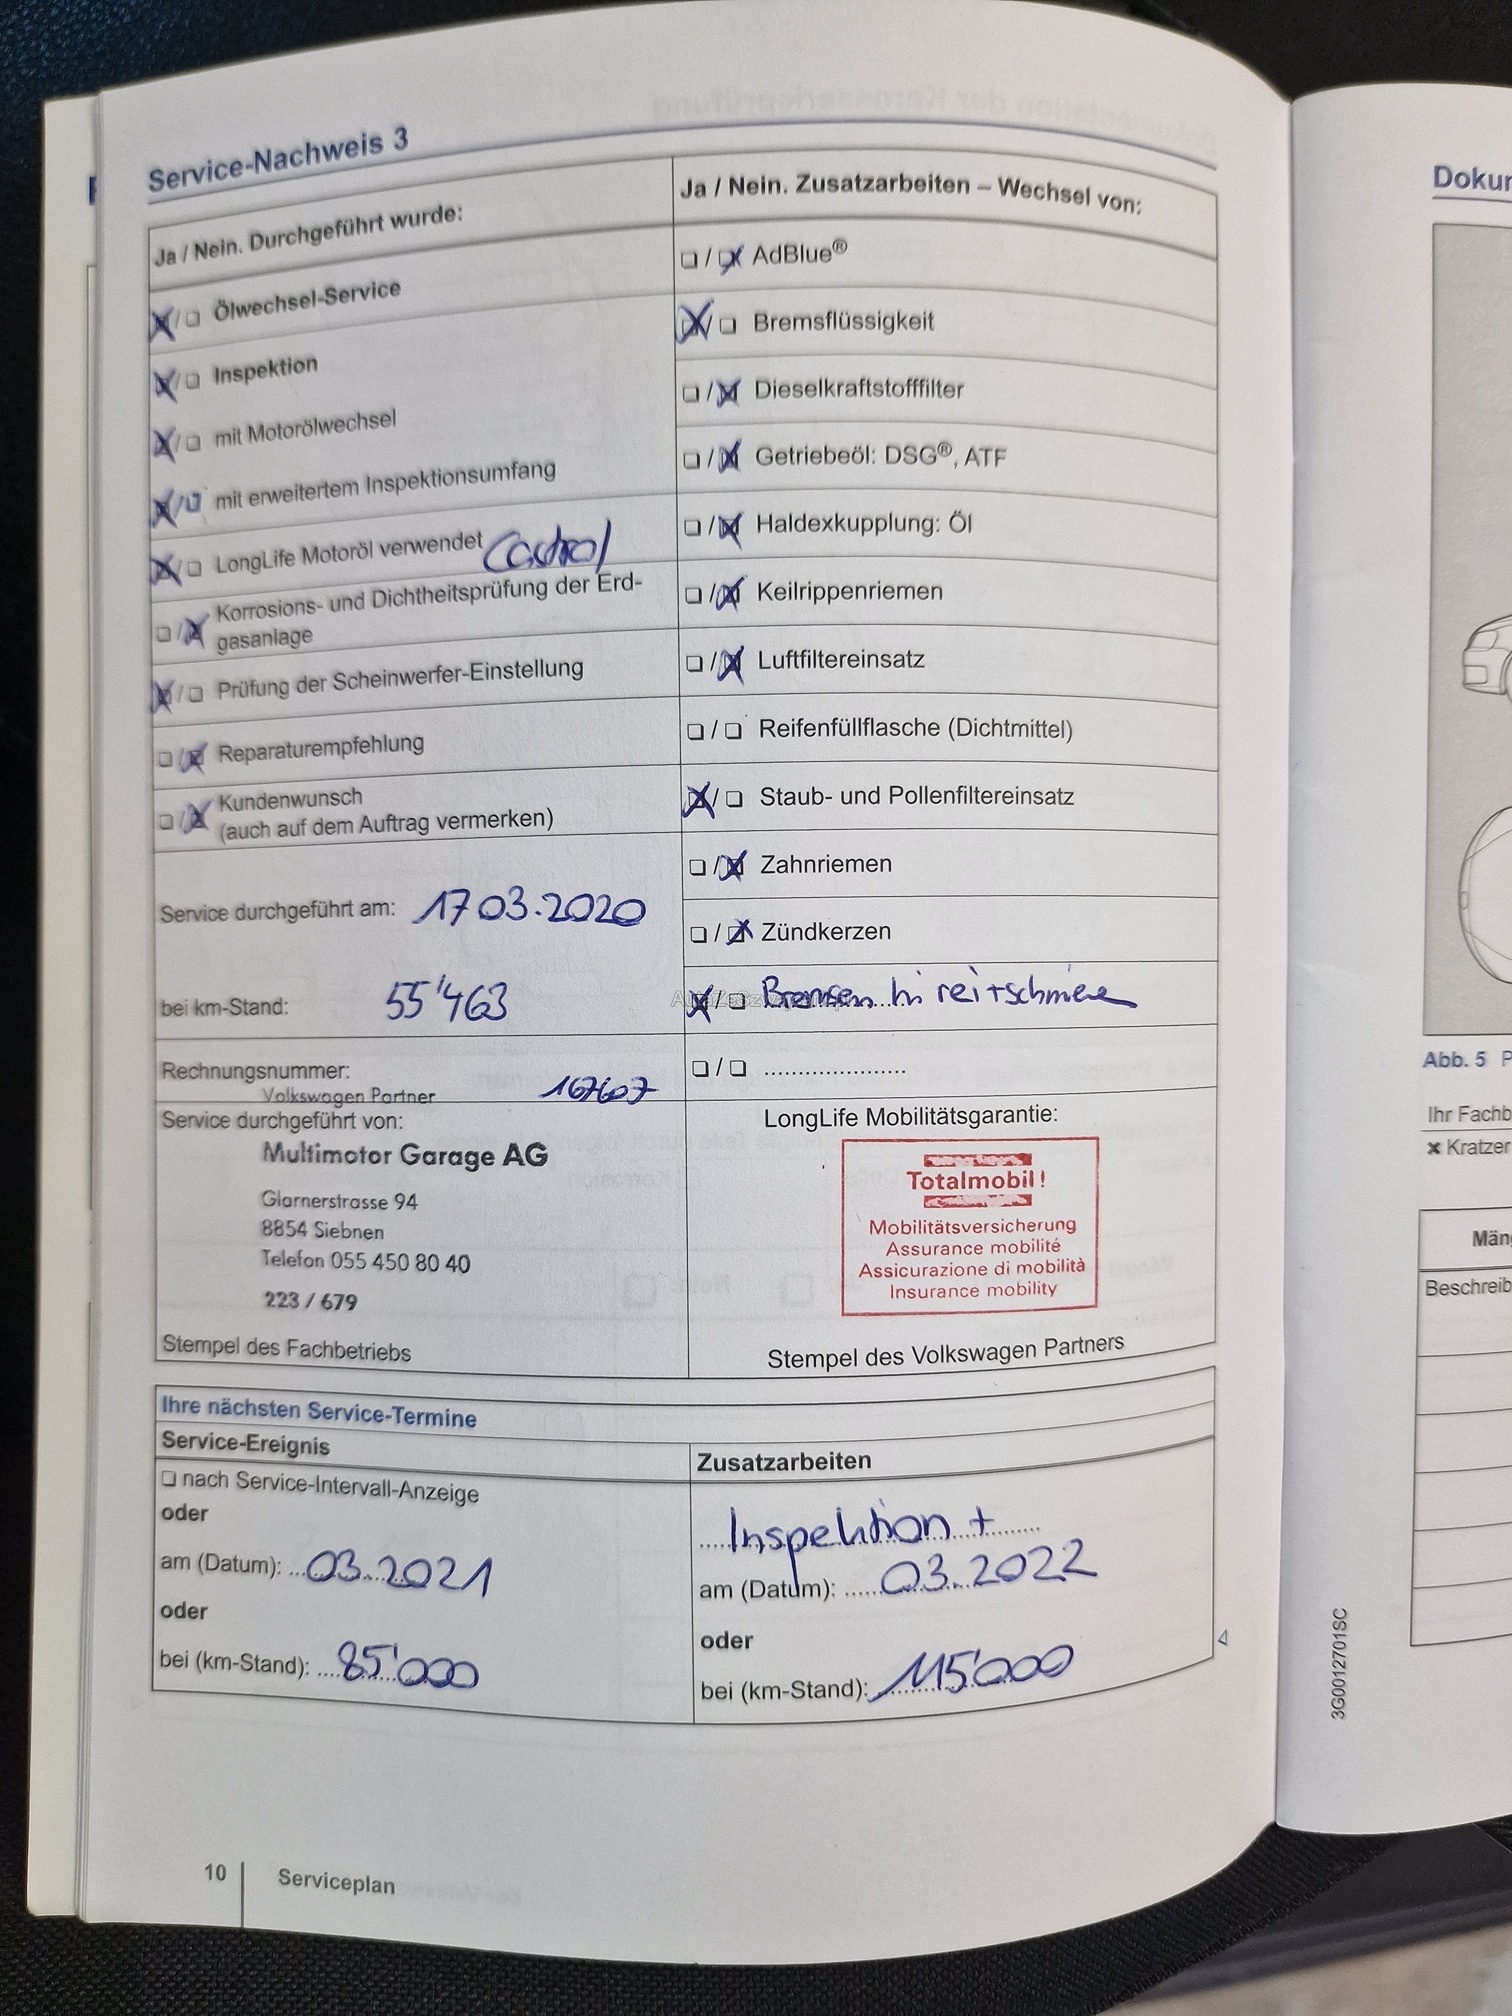 Service-Nachweis 3
Ja / Nein. Durchgeführt wurde:
☒ / ☐ Ölwechsel-Service
☒ / ☐ Inspektion
☒ / ☐ mit Motorölwechsel
☒ / ☐ mit erweitertem Inspektionsumfang
☒ / ☐ LongLife Motoröl verwendet Castrol
☐ / ☒ Korrosions- und Dichtheitsprüfung der Erd-
gasanlage
☒ / ☐ Prüfung der Scheinwerfer-Einstellung
☐ / ☒ Reparaturempfehlung
☐ / ☒ Kundenwunsch
(auch auf dem Auftrag vermerken)
Service durchgeführt am: 17 03.2020
bei km-Stand: 55'463
Rechnungsnummer: 167607
Volkswagen Partner
Service durchgeführt von:
Multimotor Garage AG
Glarnerstrasse 94
8854 Siebnen
Telefon 055 450 80 40
223 / 679
Stempel des Fachbetriebs
Ja / Nein. Zusatzarbeiten – Wechsel von:
☐ / ☒ AdBlue®
☒ / ☐ Bremsflüssigkeit
☐ / ☒ Dieselkraftstofffilter
☐ / ☒ Getriebeöl: DSG®, ATF
☐ / ☒ Haldexkupplung: Öl
☐ / ☒ Keilrippenriemen
☐ / ☒ Luftfiltereinsatz
☐ / ☐ Reifenfüllflasche (Dichtmittel)
☒ / ☐ Staub- und Pollenfiltereinsatz
☐ / ☒ Zahnriemen
☐ / ☒ Zündkerzen
☒ / ☐ Bremsen hi
☐ / ☐ .....................
LongLife Mobilitätsgarantie:
Totalmobil!
Mobilitätsversicherung
Assurance mobilité
Assicurazione di mobilità
Insurance mobility
Stempel des Volkswagen Partners
Ihre nächsten Service-Termine
Service-Ereignis
☐ nach Service-Intervall-Anzeige
oder
am (Datum): 03.2021
oder
bei (km-Stand): 85'000
Zusatzarbeiten
Inspektion +
am (Datum): 03.2022
oder
bei (km-Stand): 115'000
10 Serviceplan
Dokur
Abb. 5 P
Ihr Fachb
✖ Kratzer
Män
Beschreib
3G0012701SC